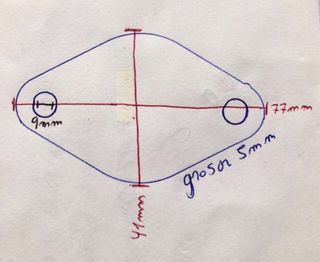 77mm
9mm
grosor 5mm
41mm